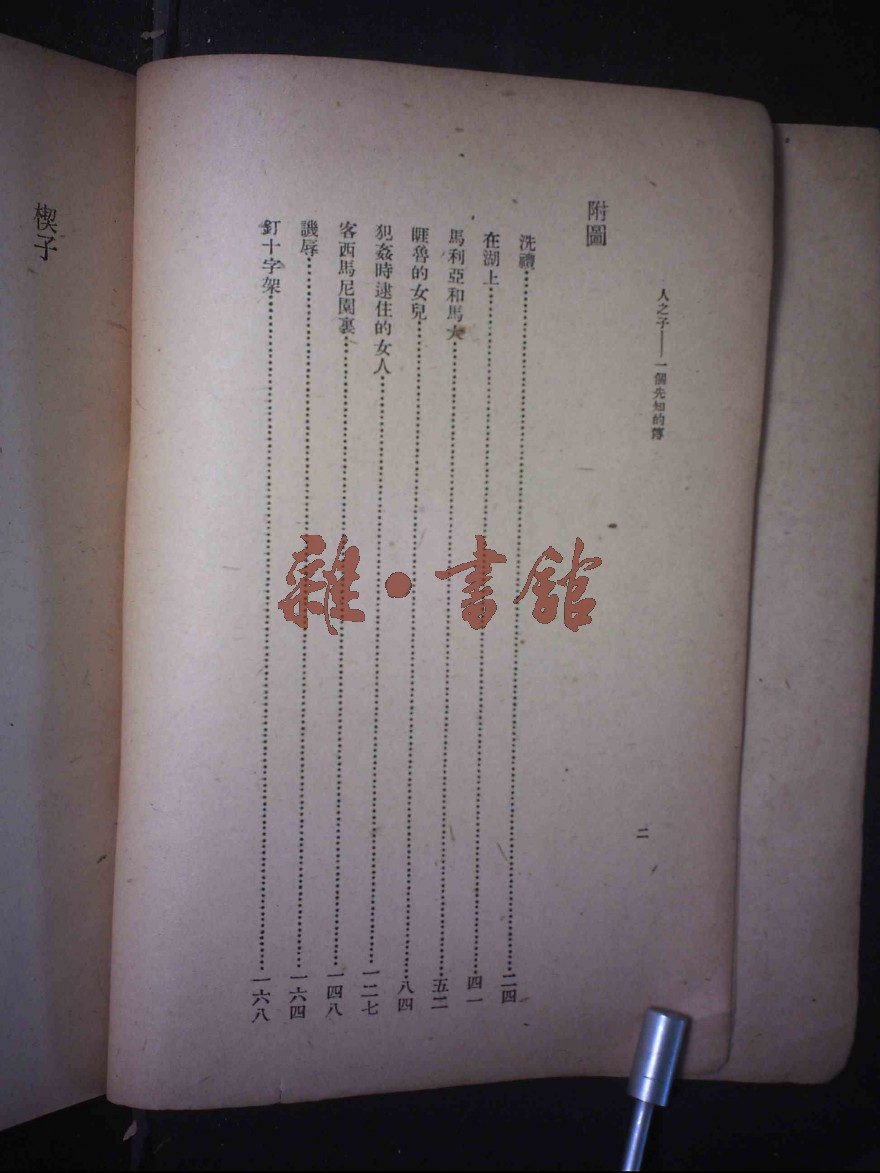 人之子——一個先知的傳
二
附圖
洗禮………二四
在湖上………四一
馬利亞和馬大………五二
睚魯的女兒………八四
犯姦時逮住的女人………一二七
客西馬尼園裏………一四八
譏辱………一六四
釘十字架………一六八
楔子
雜·書館